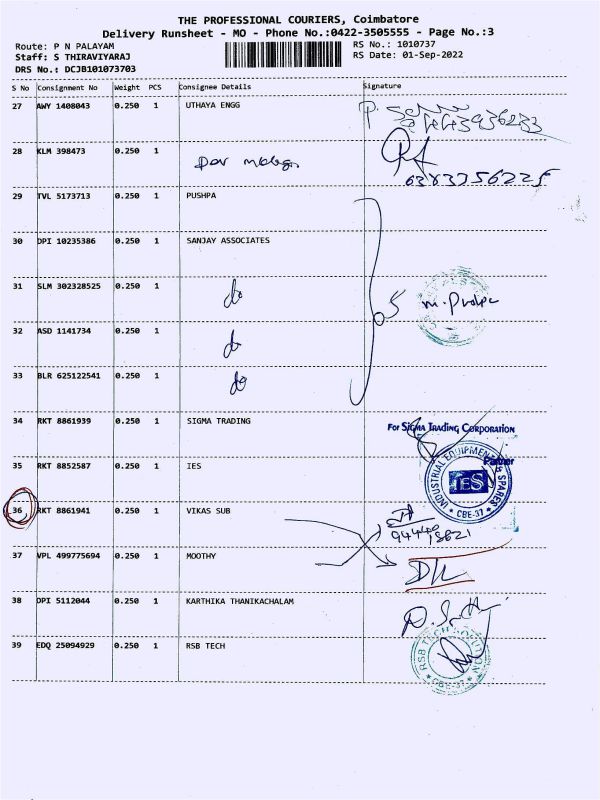 THE PROFESSIONAL COURIERS, Coimbatore
Delivery Runsheet - MO - Phone No.:0422-3505555 - Page No.:3
Route: P N PALAYAM
RS No.: 1010737
Staff: S THIRAVIYARAJ
RS Date: 01-Sep-2022
DRS No.: DCJB101073703
S No Consignment No Weight PCS Consignee Details Signature
27 AWY 1408043 0.250 1 UTHAYA ENGG
28 KLM 398473 0.250 1
6383356225
29 TVL 5173713 0.250 1 PUSHPA
30 DPI 10235386 0.250 1 SANJAY ASSOCIATES
31 SLM 302328525 0.250 1 do
5
32 ASD 1141734 0.250 1 do
33 BLR 625122541 0.250 1 do
34 RKT 8861939 0.250 1 SIGMA TRADING
For SIGMA TRADING CORPORATION
Partner
35 RKT 8852587 0.250 1 IES
INDUSTRIAL EQUIPMENT & SPARES
IES
CBE-37
36 RKT 8861941 0.250 1 VIKAS SUB
37 VPL 499775694 0.250 1 MOOTHY
38 DPI 5112044 0.250 1 KARTHIKA THANIKACHALAM
39 EDQ 25094929 0.250 1 RSB TECH
RSB TECH
CBE-37